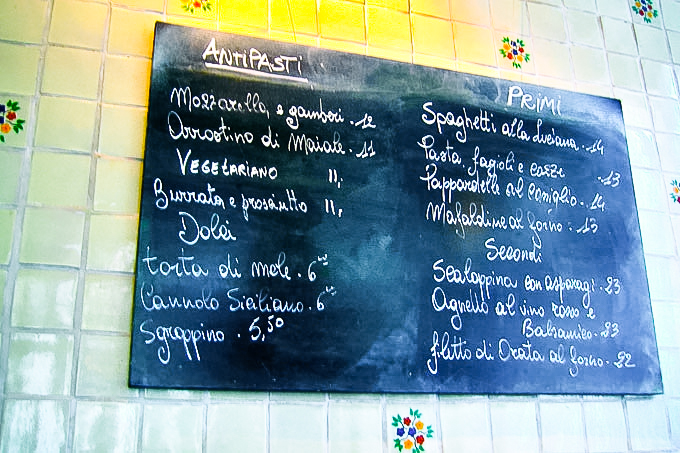 ANTIPASTI
Mozzarella e gamberi . 12
Arrostino di Maiale . 11
VEGETARIANO 11,
Burrata e prosciutto 11,
Dolci
torta di mele . 6
Cannolo Siciliano . 6
Sgroppino . 5,50
PRIMI
Spaghetti alla Luciana . 14
Pasta fagioli e cozze . 13
Pappardelle al coniglio . 14
Mafaldine al forno . 13
Secondi
Scaloppina con asparagi . 23
Agnello al vino rosso e
Balsamico . 23
filetto di Orata al forno . 22